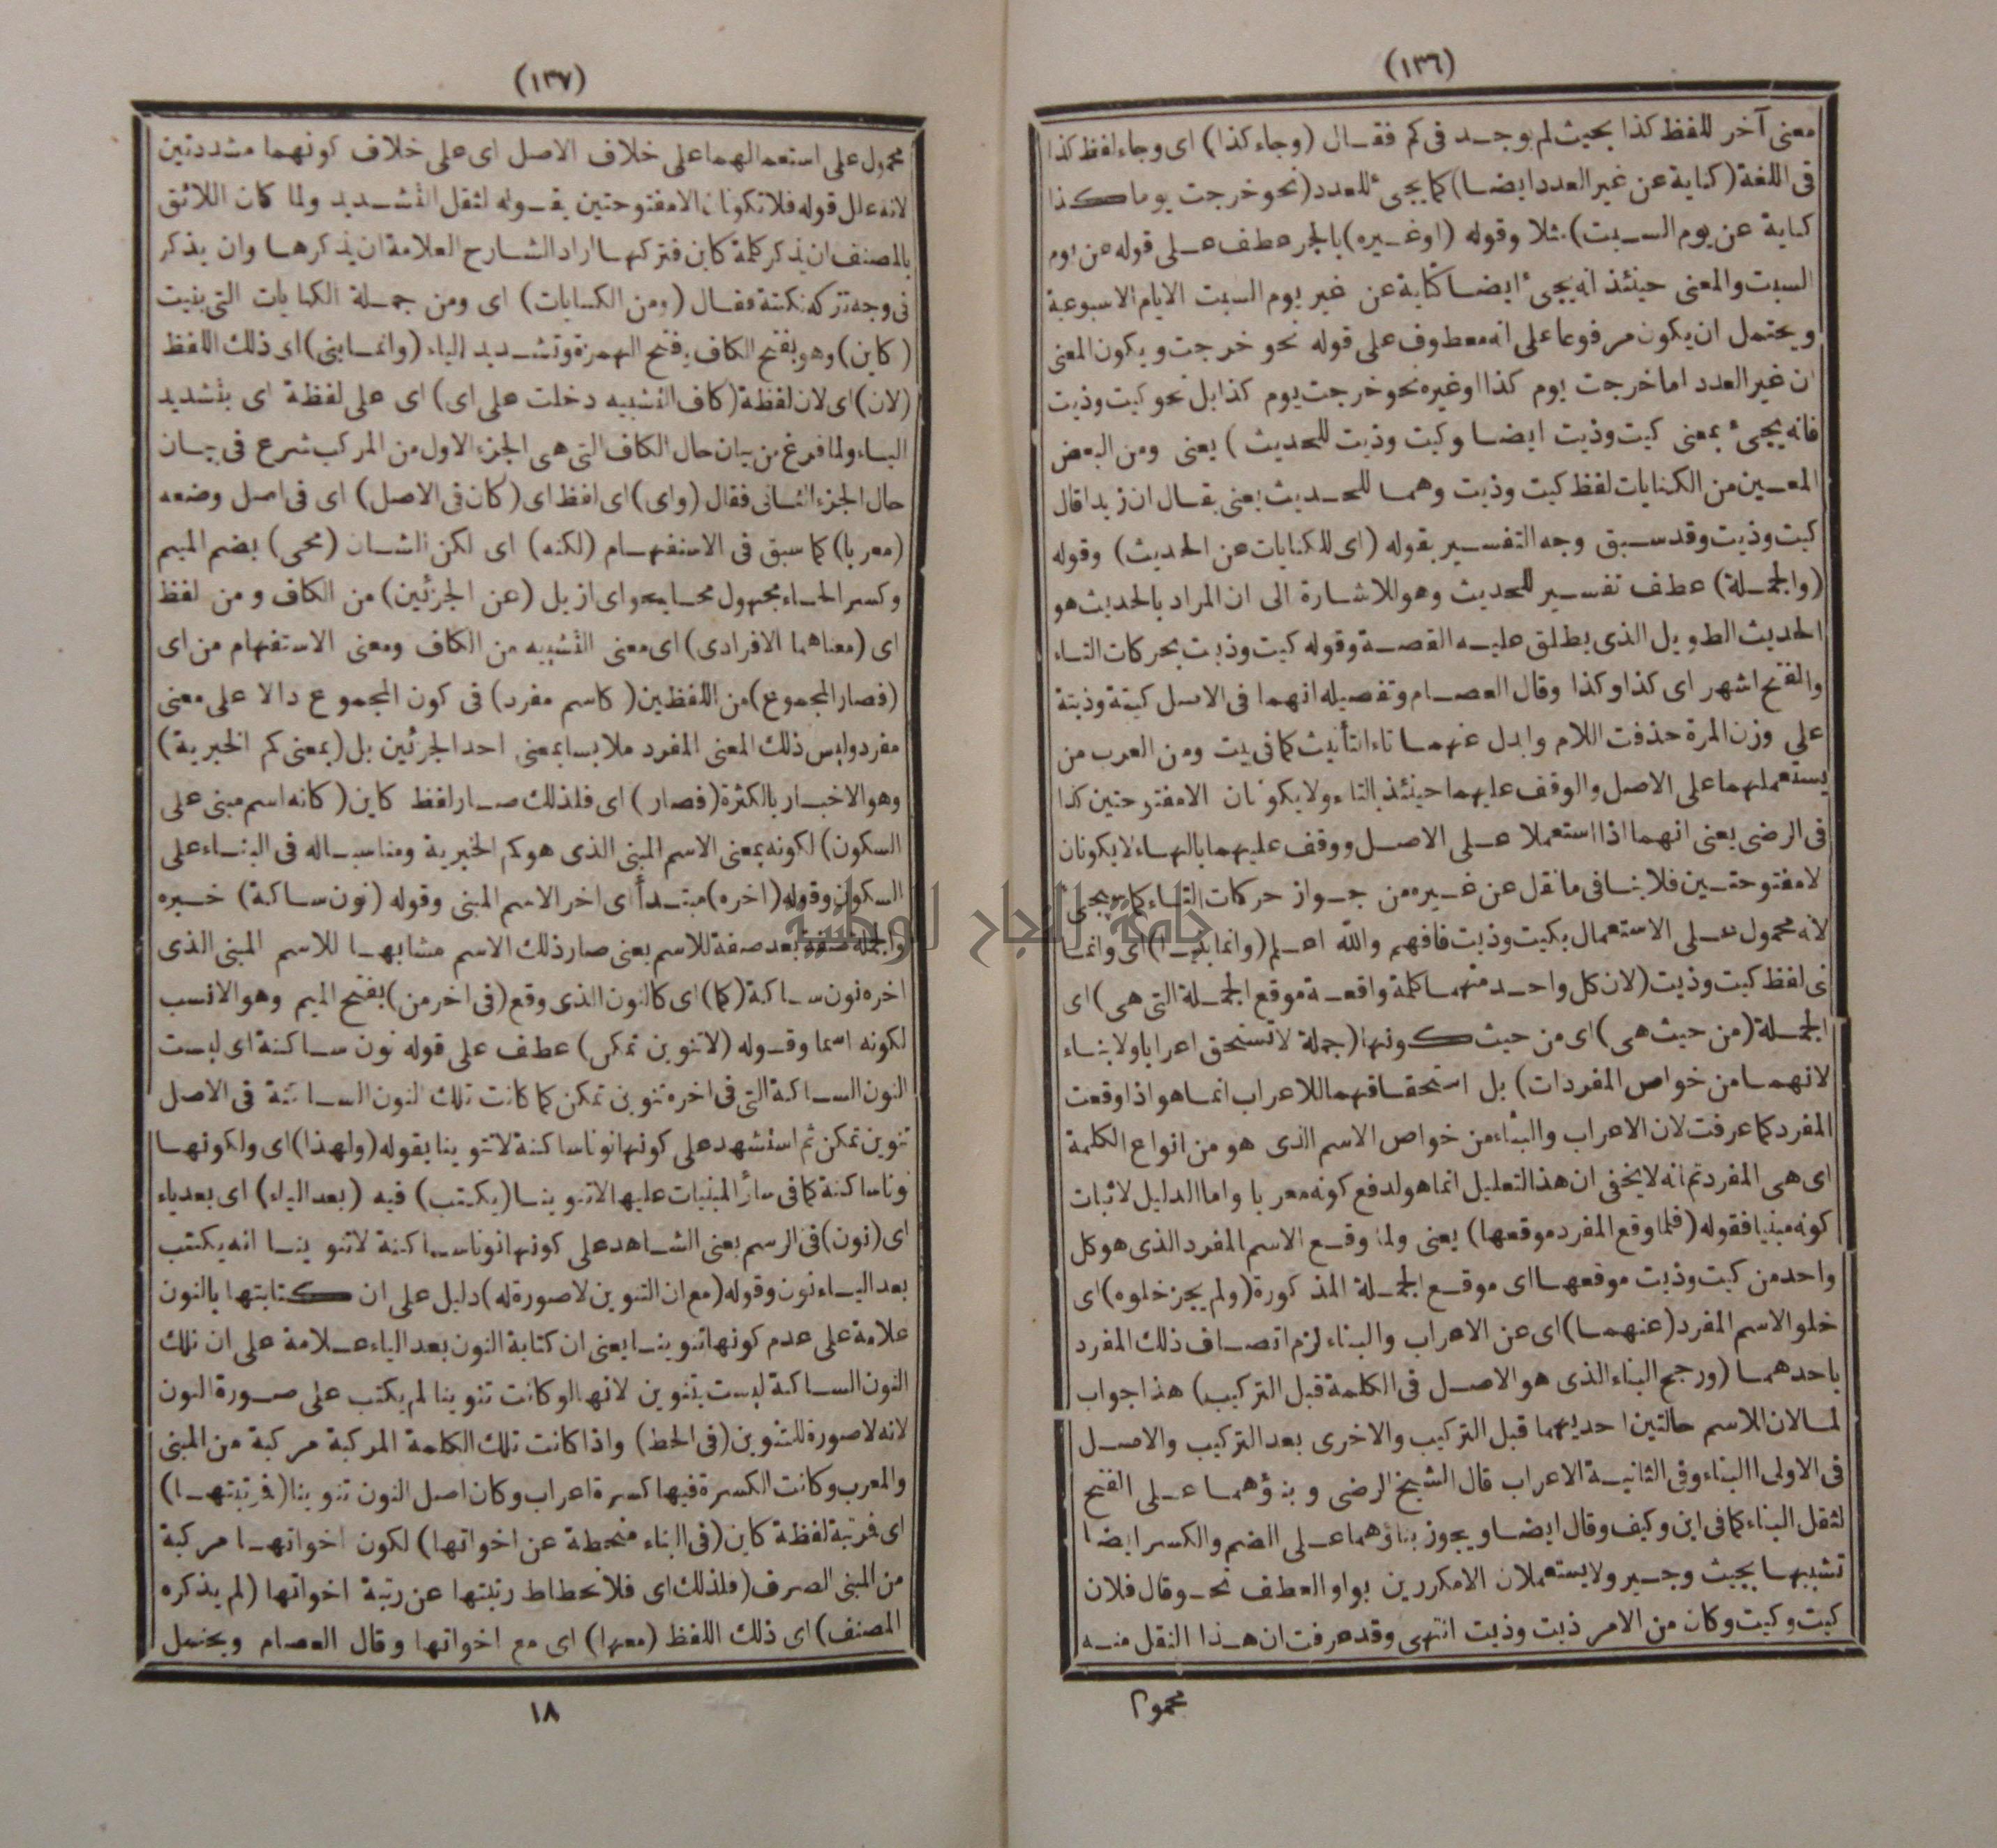 (١٣٦)
معنى آخر للفظ كذا بحيث لم يوجد فى كم فقال (وجاء كذا) اى وجاء لفظ كذا
فى اللغة (كناية عن غير العدد ايضا) كما يجىء للعدد (نحو خرجت يوما كذا
كناية عن يوم السبت) مثلا وقوله (او غيره) بالجر عطف على قوله عن يوم
السبت والمعنى حينئذ انه يجىء ايضا كناية عن غير يوم السبت الايام الاسبوعية
ويحتمل ان يكون مرفوعا على انه معطوف على قوله نحو خرجت ويكون المعنى
ان غير العدد اما خرجت يوم كذا او غيره نحو خرجت يوم كذا بل نحو كيت وذيت
فانه يجىء بمعنى كيت وذيت ايضا وكيت وذيت للحديث) يعنى ومن البعض
المعين من الكنايات لفظ كيت وذيت وهما للحديث يعنى يقال ان زيدا قال
كيت وذيت وقد سبق وجه التفسير بقوله (اى للكنايات عن الحديث) وقوله
(والجملة) عطف تفسير للحديث وهو للاشارة الى ان المراد بالحديث هو
الحديث الطويل الذى يطلق عليه القصة وقوله كيت وذيت بحركات التاء
والفتح اشهر اى كذا وكذا وقال العصام وتفصيله انهما فى الاصل كيتة وذيتة
على وزن المرة حذفت اللام وابدل عنهما تاء التأنيث كما فى بنت ومن العرب من
يستعملهما على الاصل والوقف عليهما حينئذ بالتاء ولا يكونان الا مفتوحتين كذا
فى الرضى يعنى انهما اذا استعملا على الاصل ووقف عليهما بالهاء لا يكونان
لا مفتوحتين فلا ينافى ما نقل عن غيره من جواز حركات التاء كما يجىء
لانه محمول على الاستعمال بكيت وذيت فافهم والله اعلم (وانما بنيا) اى وانما
نى لفظ كيت وذيت (لان كل واحد منهما كلمة واقعة موقع الجملة التى هى) اى
الجملة (من حيث هى) اى من حيث كونها (جملة لا تستحق اعرابا ولا بناء
لانهما من خواص المفردات) بل استحقاقهما للاعراب انما هو اذا وقعت
المفرد كما عرفت لان الاعراب والبناء من خواص الاسم الذى هو من انواع الكلمة
اى هى المفرد ثم انه لا يخفى ان هذا التعليل انما هو لدفع كونه معربا واما الدليل لاثبات
كونه مبنيا فقوله (فلما وقع المفرد موقعها) يعنى ولما وقع الاسم المفرد الذى هو كل
واحد من كيت وذيت موقعها اى موقع الجملة المذكورة (ولم يجز خلوه) اى
خلو الاسم المفرد (عنهما) اى عن الاعراب والبناء لزم اتصاف ذلك المفرد
باحدهما (ورجح البناء الذى هو الاصل فى الكلمة قبل التركيب) هذا جواب
لما لان للاسم حالتين احديهما قبل التركيب والاخرى بعد التركيب والاصل
فى الاولى البناء وفى الثانية الاعراب قال الشيخ الرضى وبنؤهما على الفتح
لثقل البناء كما فى اين وكيف وقال ايضا ويجوز بناؤهما على الضم والكسر ايضا
تشبيها بحيث وجير ولا يستعملان الا مكررين بواو العطف نحو وقال فلان
كيت وكيت وكان من الامر ذيت وذيت انتهى وقد عرفت ان هذا النقل منه
(١٣٧)
محمول على استعمالهما على خلاف الاصل اى على خلاف كونهما مشددتين
لانه علل قوله فلا تكونان الا مفتوحتين بقوله لثقل التشديد ولما كان اللائق
بالمصنف ان يذكر كلمة كاين فتركها اراد الشارح العلامة ان يذكرها وان يذكر
فى وجه تركه نكتة فقال (ومن الكنايات) اى ومن جملة الكنايات التى بنيت
(كاين) وهو بفتح الكاف وفتح الهمزة وتشديد الياء (وانما بنى) اى ذلك اللفظ
(لان) اى لان لفظة (كاف التشبيه دخلت على اى) اى على لفظة اى بتشديد
الياء ولما فرغ من بيان حال الكاف التى هى الجزء الاول من المركب شرع فى بيان
حال الجزء الثانى فقال (واى) اى لفظ اى (كان فى الاصل) اى فى اصل وضعه
(معربا) كما سبق فى الاستفهام (لكنه) اى لكن الشان (محى) بضم الميم
وكسر الحاء مجهول محا يمحو اى ازيل (عن الجزئين) من الكاف ومن لفظ
اى (معناهما الافرادى) اى معنى التشبيه من الكاف ومعنى الاستفهام من اى
(فصار المجموع) من اللفظين (كاسم مفرد) فى كون المجموع دالا على معنى
مفرد وليس ذلك المعنى المفرد ملابسا بمعنى احد الجزئين بل (بمعنى كم الخبرية)
وهو الاخبار بالكثرة (فصار) اى فلذلك صار لفظ كاين (كانه اسم مبنى على
السكون) لكونه بمعنى الاسم المبنى الذى هو كم الخبرية ومناسباله فى البناء على
السكون وقوله (اخره) مبتدأ اى اخر الاسم المبنى وقوله (نون ساكنة) خبره
والجملة صفة بعد صفة للاسم يعنى صار ذلك الاسم مشابها للاسم المبنى الذى
اخره نون ساكنة (كما) اى كالنون الذى وقع (فى اخر من) بفتح الميم وهو الانسب
لكونه اسما وقوله (لا تنوين تمكن) عطف على قوله نون ساكنة اى ليست
النون الساكنة التى فى اخره تنوين تمكن كما كانت تلك النون الساكنة فى الاصل
تنوين تمكن ثم استشهد على كونها نونا ساكنة لا تنوينا بقوله (ولهذا) اى ولكونها
ونا ساكنة كما فى سائر المبنيات عليها لا تنوينا (يكتب) فيه (بعد الياء) اى بعد ياء
اى (نون) فى الرسم يعنى الشاهد على كونها نونا ساكنة لا تنوينا انه يكتب
بعد الياء نون وقوله (مع ان التنوين لا صورة له) دليل على ان كتابتها بالنون
علامة على عدم كونها تنوينا يعنى ان كتابة النون بعد الياء علامة على ان تلك
النون الساكنة ليست بتنوين لانها لو كانت تنوينا لم يكتب على صورة النون
لانه لا صورة للتنوين (فى الخط) واذا كانت تلك الكلمة المركبة مركبة من المبنى
والمعرب وكانت الكسرة فيها كسرة اعراب وكان اصل النون تنوينا (فرتبتها)
اى فرتبة لفظة كاين (فى البناء منحطة عن اخواتها) لكون اخواتها مركبة
من المبنى الصرف (فلذلك اى فلانحطاط رتبتها عن رتبة اخواتها (لم يذكره
المصنف) اى ذلك اللفظ (معها) اى مع اخواتها وقال العصام ويحتمل
١٨
جامعة النجاح الوطنية